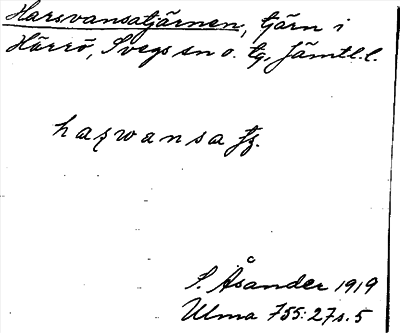 Harsvansatjärnen, tjärn i
Härrö, Svegs sn o. tg, Jämtl. l.
haʂwansa
S. Åsander 1919
Ulma 755:27 s. 5